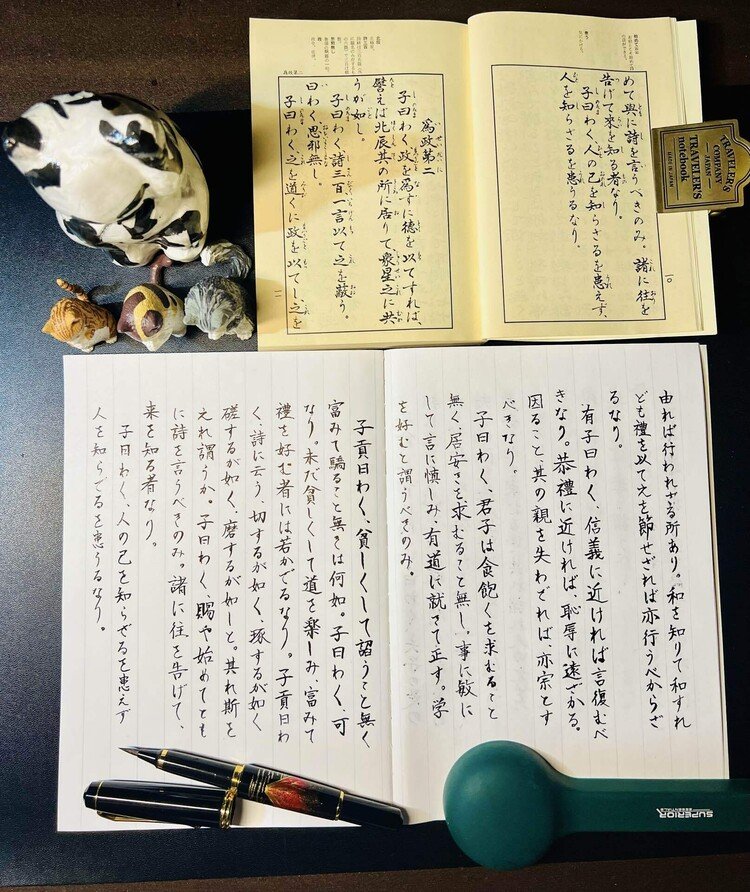 めて與に詩を言うべきのみ。諸に往を
告げて來を知る者なり。
子曰わく、人の己を知らざるを患えず、
人を知らざるを患うるなり。
一〇
爲政第二
子曰わく、政を爲すに德を以てすれば、
譬えば北辰其の所に居りて、衆星之に共
うが如し。
子曰わく、詩三百、一言以て之を蔽う。
曰わく、思邪無し。
子曰わく、之を道くに政を以てし、之を
爲政第二
一一
TRAVELER'S
COMPANY
JAPAN
TRAVELER'S
notebook
MADE IN JAPAN
由れば行われざる所あり。和を知りて和すれ
ども禮を以て之を節せざれば亦行うべからざ
るなり。
有子曰わく、信義に近ければ言復むべ
きなり。恭禮に近ければ、恥辱に遠ざかる。
因ること、其の親を失わざれば、亦宗とす
べきなり。
子曰わく、君子は食飽くを求むること
無く、居安きを求むること無し。事に敏に
して言に慎しみ、有道に就きて正す。学
を好むと謂うべきのみ。
子貢曰わく、貧しくして諂うこと無く
富みて驕ること無きは何如。子曰わく、可
なり。未だ貧しくして道を楽しみ、富みて
禮を好む者には若かざるなり。子貢曰わ
く、詩に云う、切するが如く、琢するが如く
磋するが如く、磨するが如しと。其れ斯を
之れ謂うか。子曰わく、賜や始めてとも
に詩を言うべきのみ。諸に往を告げて、
来を知る者なり。
子曰わく、人の己を知らざるを患えず
人を知らざるを患うるなり。
SUPERIOR
ESSENTIALS